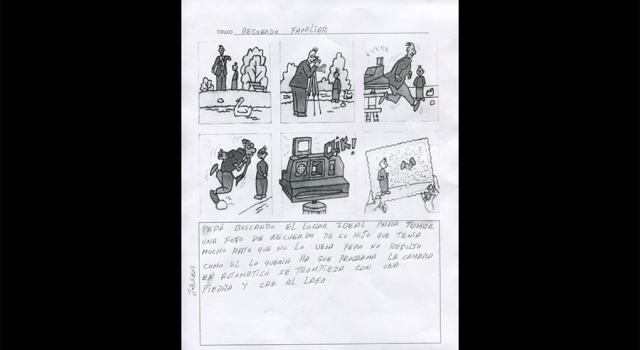 TITULO RECUERDO FAMILIAR
KRRRR
CHIK!
PAPÁ BUSCANDO EL LUGAR IDEAL PARA TOMAR
UNA FOTO DE RECUERDO DE SU HIJO QUE TENÍA
MUCHO RATO QUE NO LO VEIA PERO NO RESULTO
COMO EL LO QUERIA YA QUE PROGRAMA LA CAMARA
EN AUTOMATICO SE TROMPIEZA CON UNA
PIEDRA Y CAE AL LAGO